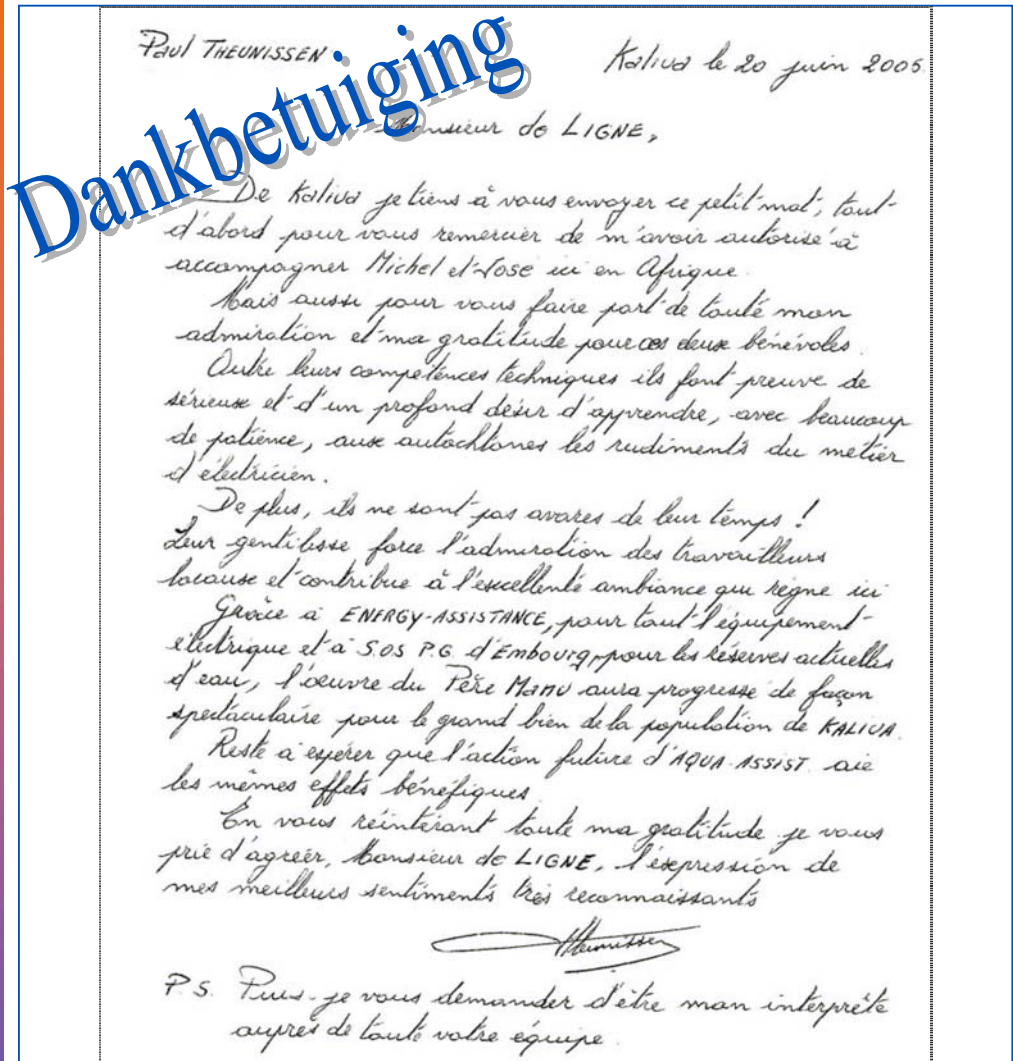 Paul THEUNISSEN
Kaliva le 20 juin 2005.
Dankbetuiging
Monsieur de LIGNE,
De Kaliva je tiens à vous envoyer ce petit mot, tout
d'abord pour vous remercier de m'avoir autorisé à
accompagner Michel et José ici en Afrique.
Mais aussi pour vous faire part de toute mon
admiration et ma gratitude pour ces deux bénévoles.
Outre leurs compétences techniques ils font preuve de
sérieux et d'un profond désir d'apprendre, avec beaucoup
de patience, aux autochtones les rudiments du métier
d'électricien.
De plus, ils ne sont pas avares de leur temps !
Leur gentillesse force l'admiration des travailleurs
locaux et contribue à l'excellente ambiance qui règne ici
Grâce à ENERGY-ASSISTANCE, pour tout l'équipement
électrique et à S.OS P.G. d'Embourg, pour les réserves actuelles
d'eau, l'oeuvre du Père Manu aura progressé de façon
spectaculaire pour le grand bien de la population de KALIVA.
Reste à espérer que l'action future d'AQUA-ASSIST. aie
les mêmes effets bénéfiques
En vous réintérant toute ma gratitude je vous
prie d'agréer, Monsieur de LIGNE, l'expression de
mes meilleurs sentiments très reconnaissants
Theunissen
P.S. Puis-je vous demander d'être mon interprète
auprès de toute votre équipe.